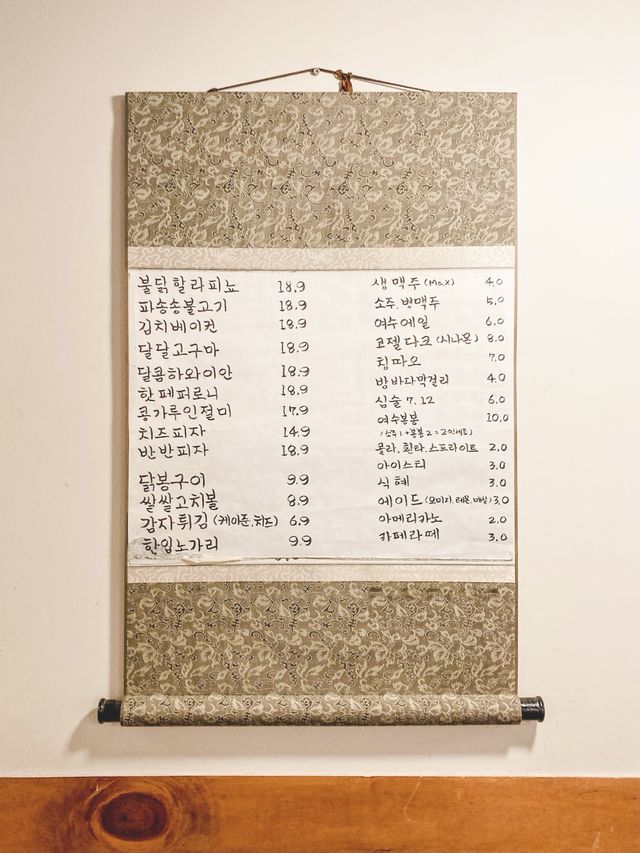 불닭할라피뇨 18.9
파송송불고기 18.9
김치베이컨 18.9
달달고구마 18.9
달콤하와이안 18.9
핫페퍼로니 18.9
콩가루인절미 17.9
치즈피자 14.9
반반피자 18.9
닭봉구이 9.9
쌀쌀고치볼 8.9
감자튀김 (케이준,치즈) 6.9
한입노가리 9.9
생맥주 (Max) 4.0
소주, 병맥주 5.0
여수에일 6.0
코젤다크 (시나몬) 8.0
칭따오 7.0
밤바다막걸리 4.0
심술 7, 12 6.0
여수봉봉 10.0
(소주1+봉봉2=고잇세트)
콜라, 환타, 스프라이트 2.0
아이스티 3.0
식혜 3.0
에이드 (오미자, 레몬, 매실) 3.0
아메리카노 2.0
카페라떼 3.0